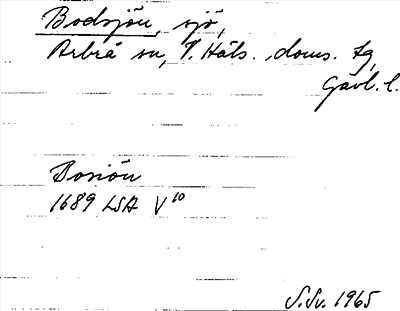 Bodsjön, sjö,
Arbrå sn, V. Häls. doms. tg,
Gävl. l.
Bosiön
1689 LSA V 10
S.Sv. 1965